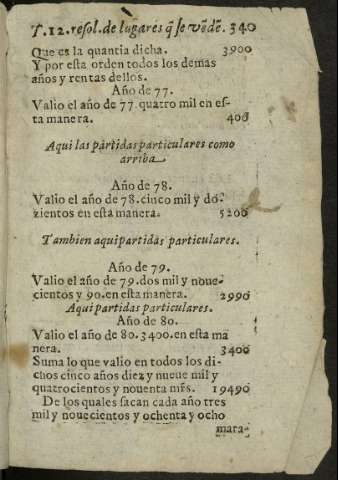 T.12.resol.de lugares q̃ se vẽdẽ. 340
Que es la quantia dicha. 3900
Y por esta orden todos los demas
años y rentas dellos.
Año de 77.
Valio el año de 77. quatro mil en es-
ta manera. 400
Aqui las partidas particulares como
arriba
Año de 78.
Valio el año de 78. cinco mil y do-
zientos en esta manera. 5200
Tambien aqui partidas particulares.
Año de 79.
Valio el año de 79. dos mil y noue-
cientos y 90. en esta manera. 2990
Aqui partidas particulares.
Año de 80.
Valio el año de 80. 3400. en esta ma
nera. 3400
Suma lo que valio en todos los di-
chos cinco años diez y nueue mil y
quatrocientos y nouenta mr̃s. 19490
De los quales sacan cada año tres
mil y nouecientos y ochenta y ocho
mara-